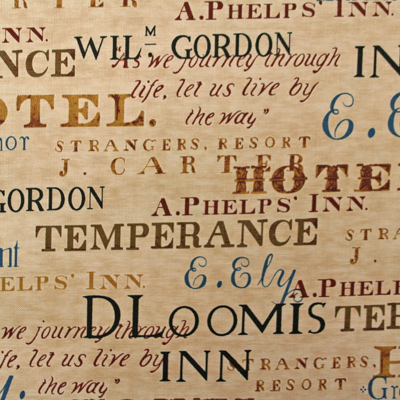 A.PHELPS INN.
INN.
WILM GORDON
"As we journey through
life, let us live by
the way"
HOTEL.
STRANGERS, RESORT
J. CARTER
HOTEL
GORDON
A.PHELPS' INN.
TEMPERANCE
PHELPS' INN.
E. Ely
A.PHELPS
D LOOMIS
we journey through
life, let us live by
the way"
INN
STRANGERS,
RESORT